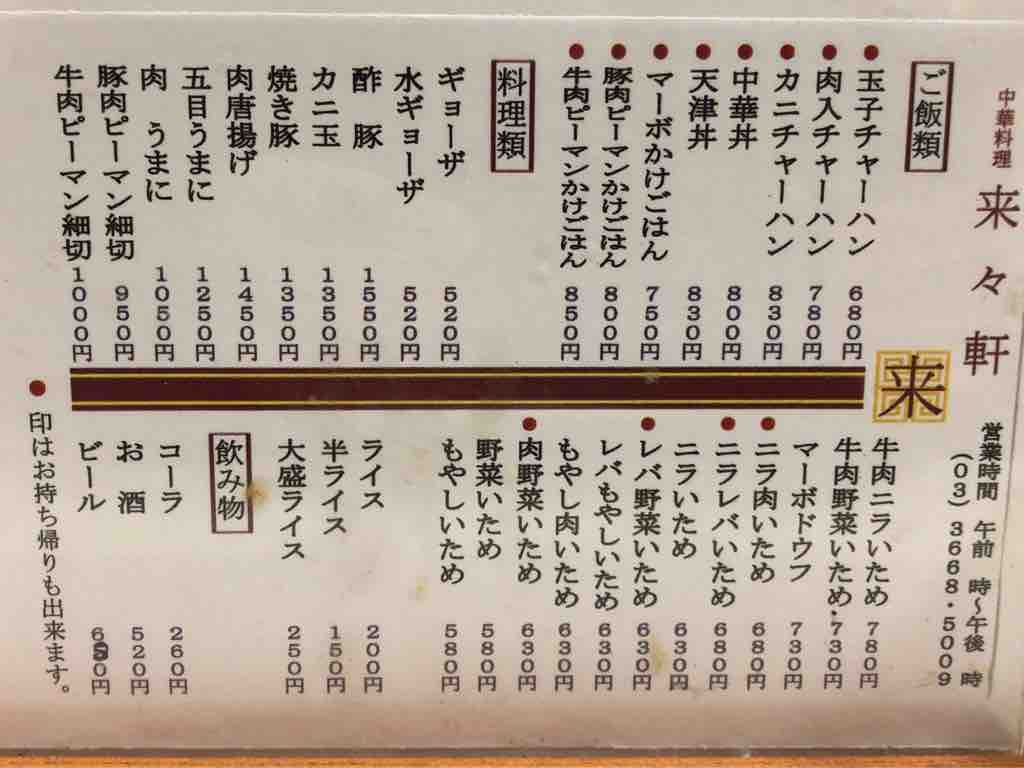 中華料理
来々軒
営業時間 午前 時〜午後 時
(03)3668・5009
来
ご飯類
●玉子チャーハン 680円
●肉入チャーハン 780円
●カニチャーハン 830円
●中華丼 800円
●天津丼 830円
●マーボかけごはん 750円
●豚肉ピーマンかけごはん 800円
●牛肉ピーマンかけごはん 850円
料理類
ギョーザ 520円
水ギョーザ 520円
酢 豚 1550円
カニ玉 1350円
焼き豚 1350円
肉唐揚げ 1450円
五目うまに 1250円
肉 うまに 1050円
豚肉ピーマン細切 950円
牛肉ピーマン細切 1000円
牛肉ニラいため 780円
牛肉野菜いため 730円
マーボドウフ 730円
●ニラ肉いため 680円
●ニラレバいため 680円
ニラいため 630円
●レバ野菜いため 630円
レバもやしいため 630円
もやし肉いため 630円
●肉野菜いため 630円
野菜いため 580円
もやしいため 580円
ライス 200円
半ライス 150円
大盛ライス 250円
飲み物
コーラ 260円
お 酒 520円
ビール
●印はお持ち帰りも出来ます。